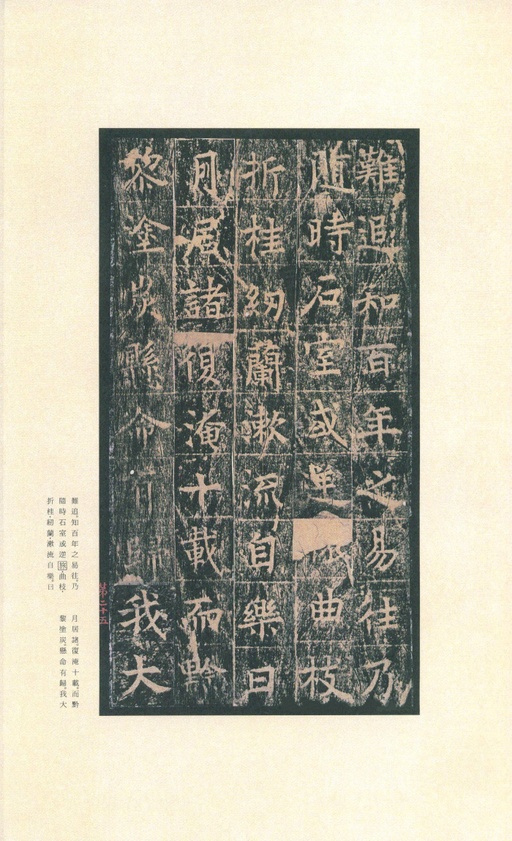 難追知百年之易往乃
隨時石室或單 曲枝
折桂紉蘭漱流自樂日
月居諸復淹十載而黔
黎塗炭縣命有歸我大
第三十五
難追。知百年之易往。乃
隨時石室。或逆旅曲枝。
折桂。紉蘭漱流自樂。日
月居諸。復淹十載。而黔
黎塗炭。懸命有歸。我大